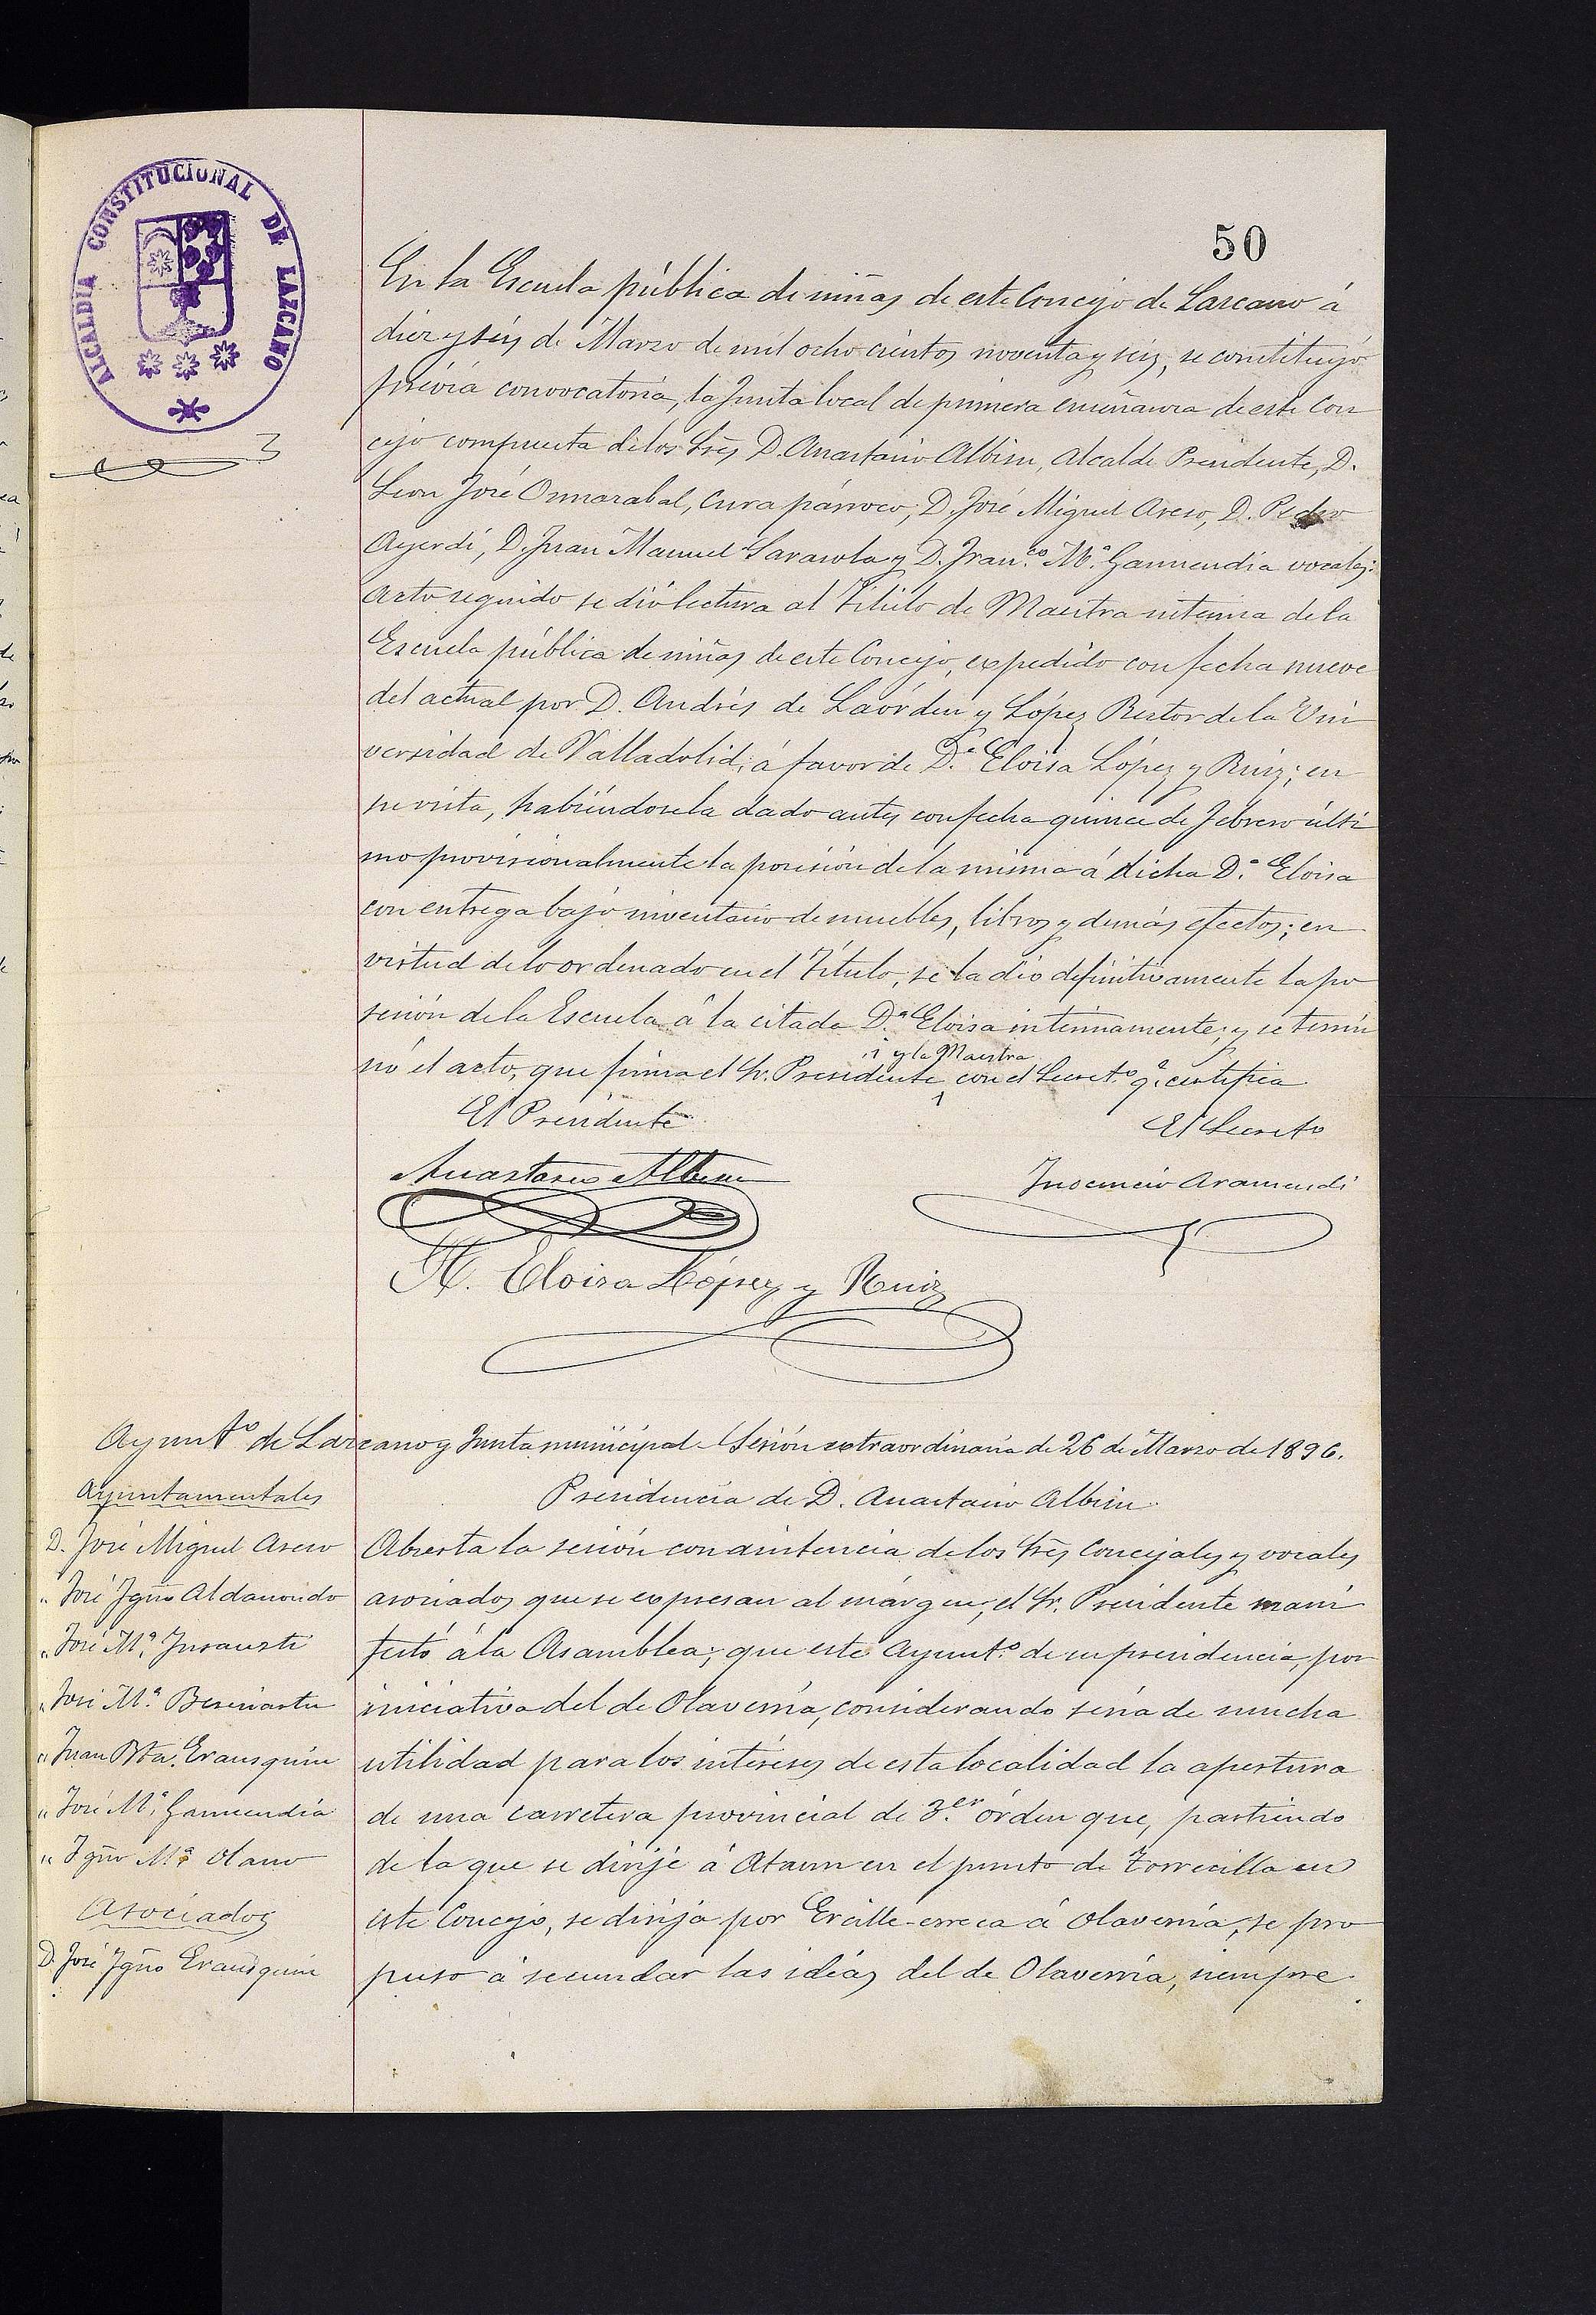 ALCALDIA CONSTITUCIONAL DE LAZCANO
50
En la Escuela pública de niñas de este Concejo de Lazcano á
diez y seis de Marzo de mil ocho cientos noventa y seis, se constituyó
prévia convocatoria, la Junta local de primera enseñanza de este Con
cejo compuesta de los Srẽs D. Anastasio Albisu, Alcalde Presidente, D.
Leon José Ormazabal, Cura párroco, D. José Miguel Areso, D. Pedro
Ayerdi, D. Juan Manuel Sarasola y D. Fran.co M.ª Garmendia vocales:
Acto seguido se dió lectura al Título de Maestra interina de la
Escuela pública de niñas de este Concejo, expedido con fecha nueve
del actual por D. Andrés de Laórden y López Rector de la Uni
versidad de Valladolid, á favor de D.ª Eloisa López y Ruiz; en
su vista, habiéndosela dado antes con fecha quince de Febrero últi
mo provisionalmente la posesión de la misma á dicha D.ª Eloisa
con entrega bajo inventario de muebles, libros y demás efectos; en
virtud de lo ordenado en el Título, se la dió definitivamente la po
sesión de la Escuela á la citada D.ª Eloisa interinamente; y se termi
y la Maestra
nó el acto, que firma el Sr. Presidente con el Secret.º q.e certifica
El Presidente
El Secreto
Anastasio Albisu
Inocencio Aramendi
H. Eloisa López y Ruiz
Ayunt.º de Lazcano y Junta municipal - Sesión extraordinaria de 26 de Marzo de 1896.
Ayuntamentales
D. José Miguel Areso
" José Ygnº Aldasondo
" José M.ª Insausti
" José M.ª Beseiartu
" Juan Bta. Erausquin
" José M.ª Garmendia
" Ygnº M.ª Olano
Asociados
D. José Ygnº Erausquin
Presidencia de D. Anastasio Albisu
Abierta la sesión con asistencia de los Srẽs Concejales y vocales
asociados que se expresan al márgen, el Sr. Presidente mani
festó á la Asamblea; que este Ayunt.º de su presidencia, por
iniciativa del de Olaverría, considerando sería de mucha
utilidad para los intéreses de esta localidad la apertura
de una carretera provincial de 3.er órden que, partiendo
de la que se dirije á Ataun en el punto de Torrecilla en
este Concejo, se dirija por Ercille-erreca á Olaverría, se pro
puso á secundar las idéas del de Olaverría, siempre